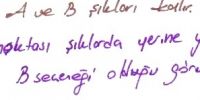 A ve B şıkları kalır.
noktası şıklarda yerine y
B seçeneği olduğu görü